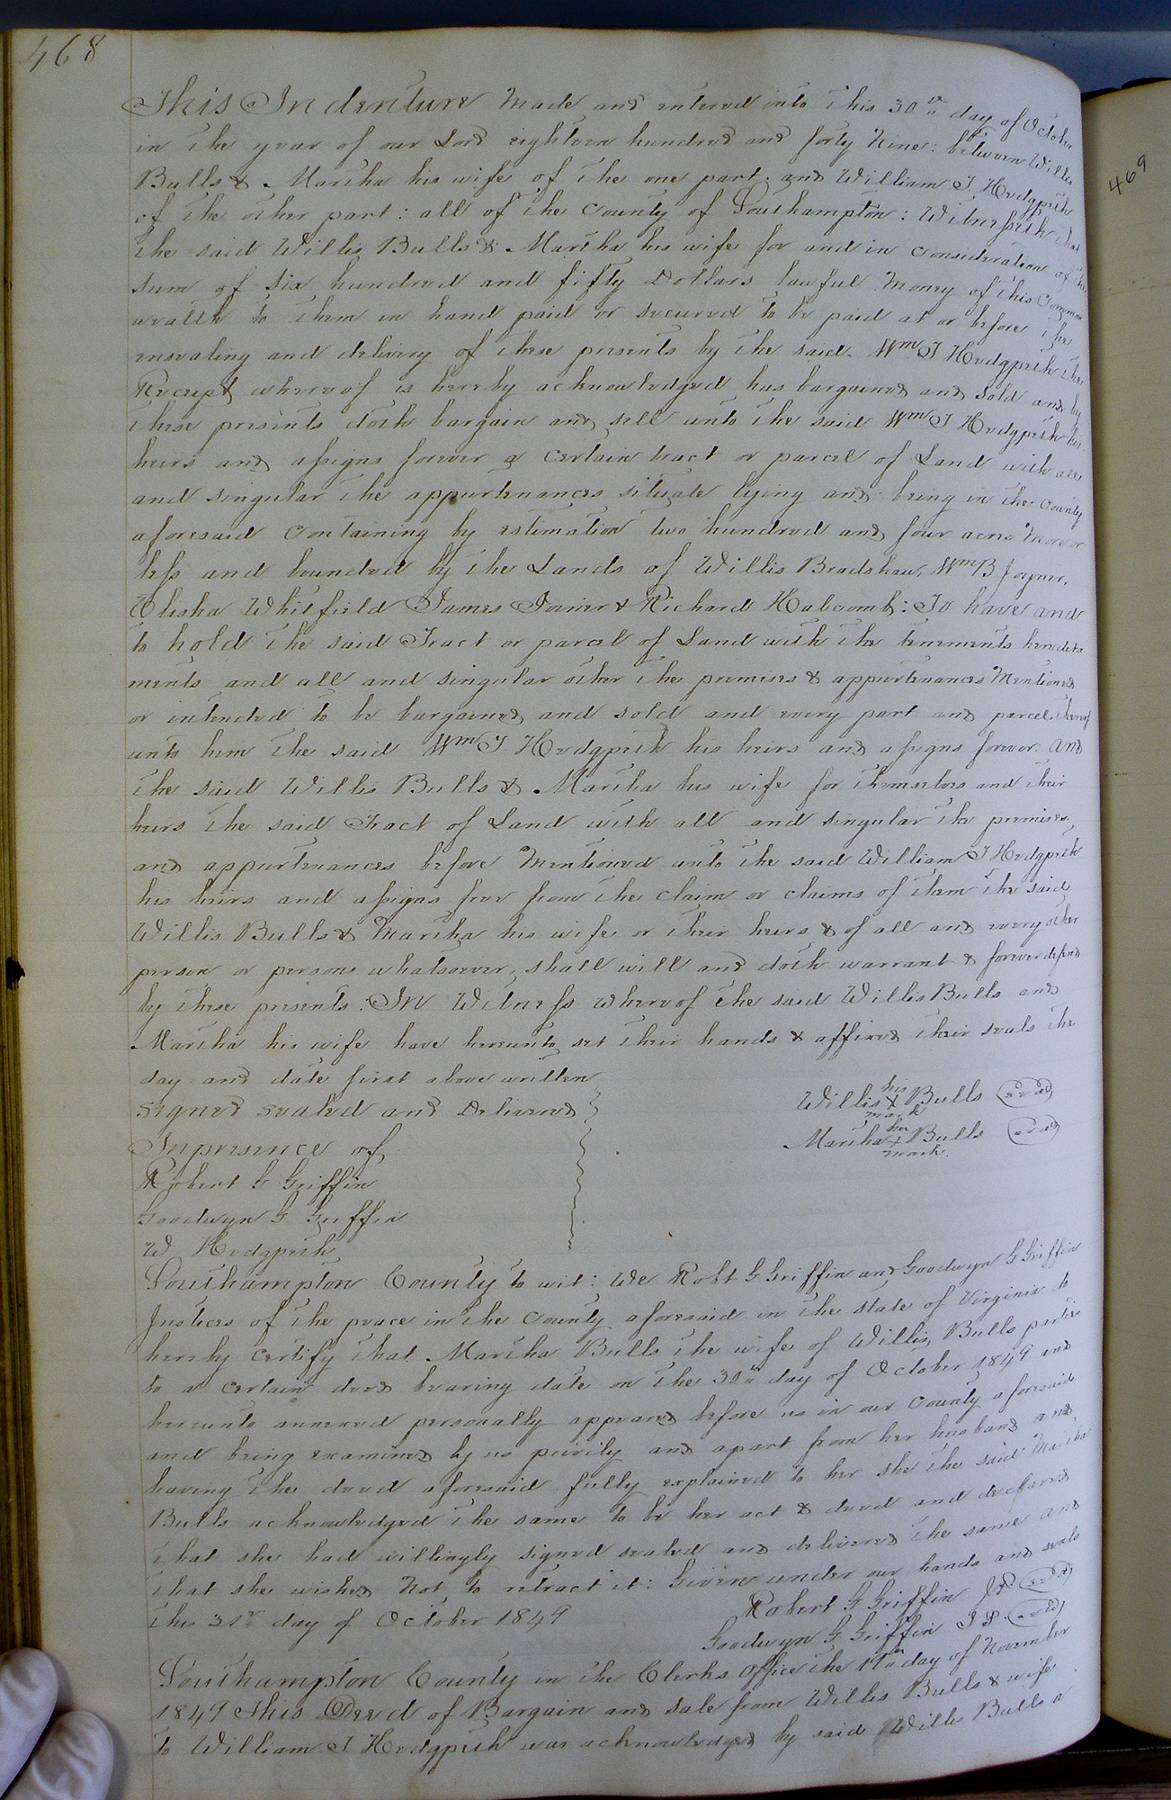 468
This Indenture Made and entered into this 30th day of October
in the year of our Lord eighteen hundred and forty Nine: between Willis
Bulls & Martha his wife of the one part, and William J Hedgpeth
of the other part: all of the County of Southampton: Witnesseth that
the said Willis Bulls & Martha his wife for and in consideration of the
sum of six hundred and fifty Dollars lawful Money of this Common
wealth to them in hand paid or secured to be paid at or before the
ensealing and delivery of these presents by the said Wm J Hedgpeth the
Receipt whereof is hereby acknowledged has bargained and sold and by
these presents doth bargain and sell unto the said Wm J Hedgpeth his
heirs and assigns forever a certain tract or parcel of Land with all
and singular the appurtenances situate lying and being in the County
aforesaid Containing by estimation two hundred and four acres More or
less and bounded by the Lands of Willis Bradshaw, Wm B Joyner,
Elisha Whitfield James Joiner & Richard Holcomb: To have and
to hold the said Tract or parcel of Land with the tenements heredita
ments and all and singular other the premises & appurtenances Mentioned
or intended to be bargained and sold and every part and parcel thereof
unto him the said Wm J Hedgpeth his heirs and assigns forever. and
the said Willis Bulls & Martha his wife for themselves and their
heirs the said Tract of Land with all and singular the premises
and appurtenances before Mentioned unto the said William J Hedgpeth
his heirs and assigns free from the claim or claims of them the said
Willis Bulls & Martha his wife or their heirs & of all and every other
person or persons whatsoever, shall will and doth warrant & forever defend
by these presents: In Witness whereof the said Willis Bulls and
Martha his wife have hereunto set their hands & affixed their seals the
day and date first above written
signed sealed and Delivered
In presence of
Robert G Griffin
Goodwyn G Griffin
W Hedgpeth
his
Willis X Bulls seal
mark
her
Martha + Bulls seal
mark
Southampton County to wit: We Robt G Griffin and Goodwyn G Griffin
Justices of the peace in the County aforesaid in the state of Virginia do
hereby Certify that Martha Bulls the wife of Willis Bulls parties
to a certain deed bearing date on the 30th day of October 1849 and
hereunto annexed personally appeared before us in our County aforesaid
and being examined by us privily and apart from her husband and
having the deed aforesaid fully explained to her she the said Martha
Bulls acknowledged the same to be her act & deed and declared
that she had willingly signed sealed and delivered the same and
that she wished Not to retract it: Given under our hands and seals
this 31st day of October 1849
Robert G Griffin J.P. seal
Goodwyn G Griffin J P seal
Southampton County in the Clerks Office the day of November
1849 This Deed of Bargain and sale from Willis Bulls & wife
to William J Hedgpeth was acknowledged by said Willis Bulls a
469